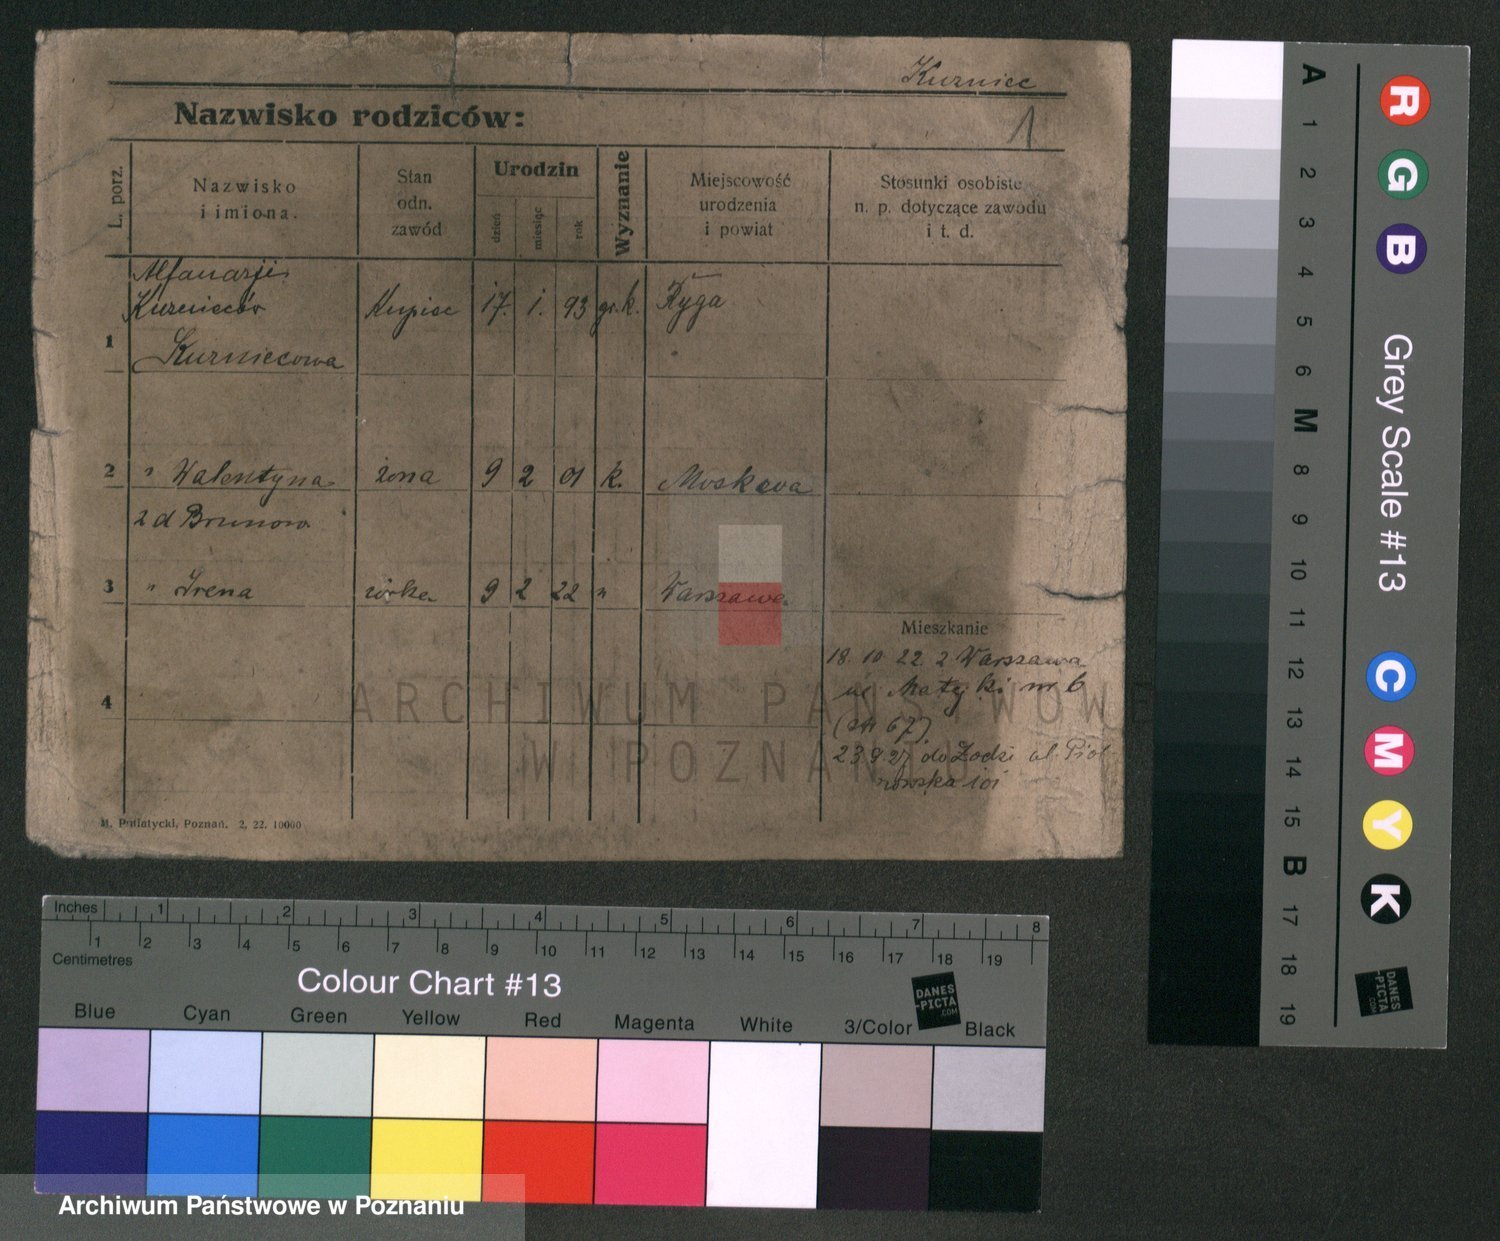 Kurniec
Nazwisko rodziców:
1
L. porz.
Nazwisko
i imiona.
Stan
odn.
zawód
Urodzin
dzień
miesiąc
rok
Wyznanie
Miejscowość
urodzenia
i powiat
Stosunki osobiste
n. p. dotyczące zawodu
i t. d.
Kurniecow Kupiec 17. 1. 93 gr. k. Ryga
1 Kurniecowa
2 " Walentyna żona 9 2 01 k. Moskwa
2 d
3 " Irena córka 9 2 22 " Warszawa
Mieszkanie
18. 10 22 z Warszawa
ul. nr 6
4
23.9.27 do Łodzi ul. Piotr
kowska 101
M. Putiatycki, Poznań. 2, 22. 10000
ARCHIWUM PAŃSTWOWE
W POZNANIU
Inches 1 2 3 4 5 6 7 8
1 2 3 4 5 6 7 8 9 10 11 12 13 14 15 16 17 18 19
Centimetres
Colour Chart #13
DANES
-PICTA
.COM
Blue Cyan Green Yellow Red Magenta White 3/Color Black
Archiwum Państwowe w Poznaniu
A 1 2 3 4 5 6 M 8 9 10 11 12 13 14 15 B 17 18 19
Grey Scale #13
R G B
C M Y K
DANES
-PICTA
.COM